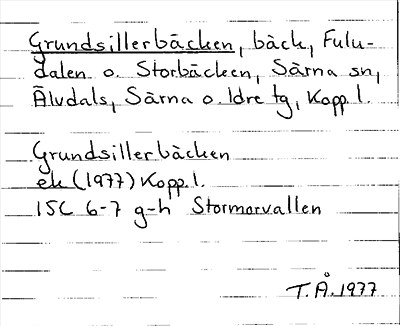 Grundsillerbäcken, bäck, Fulu-
dalen o. Storbäcken, Särna sn,
Älvdals, Särna o. Idre tg, Kopp. l.
Grundsillerbäcken
ek (1977) Kopp. l.
15C 6-7 g-h Stormorvallen
T.Å. 1977